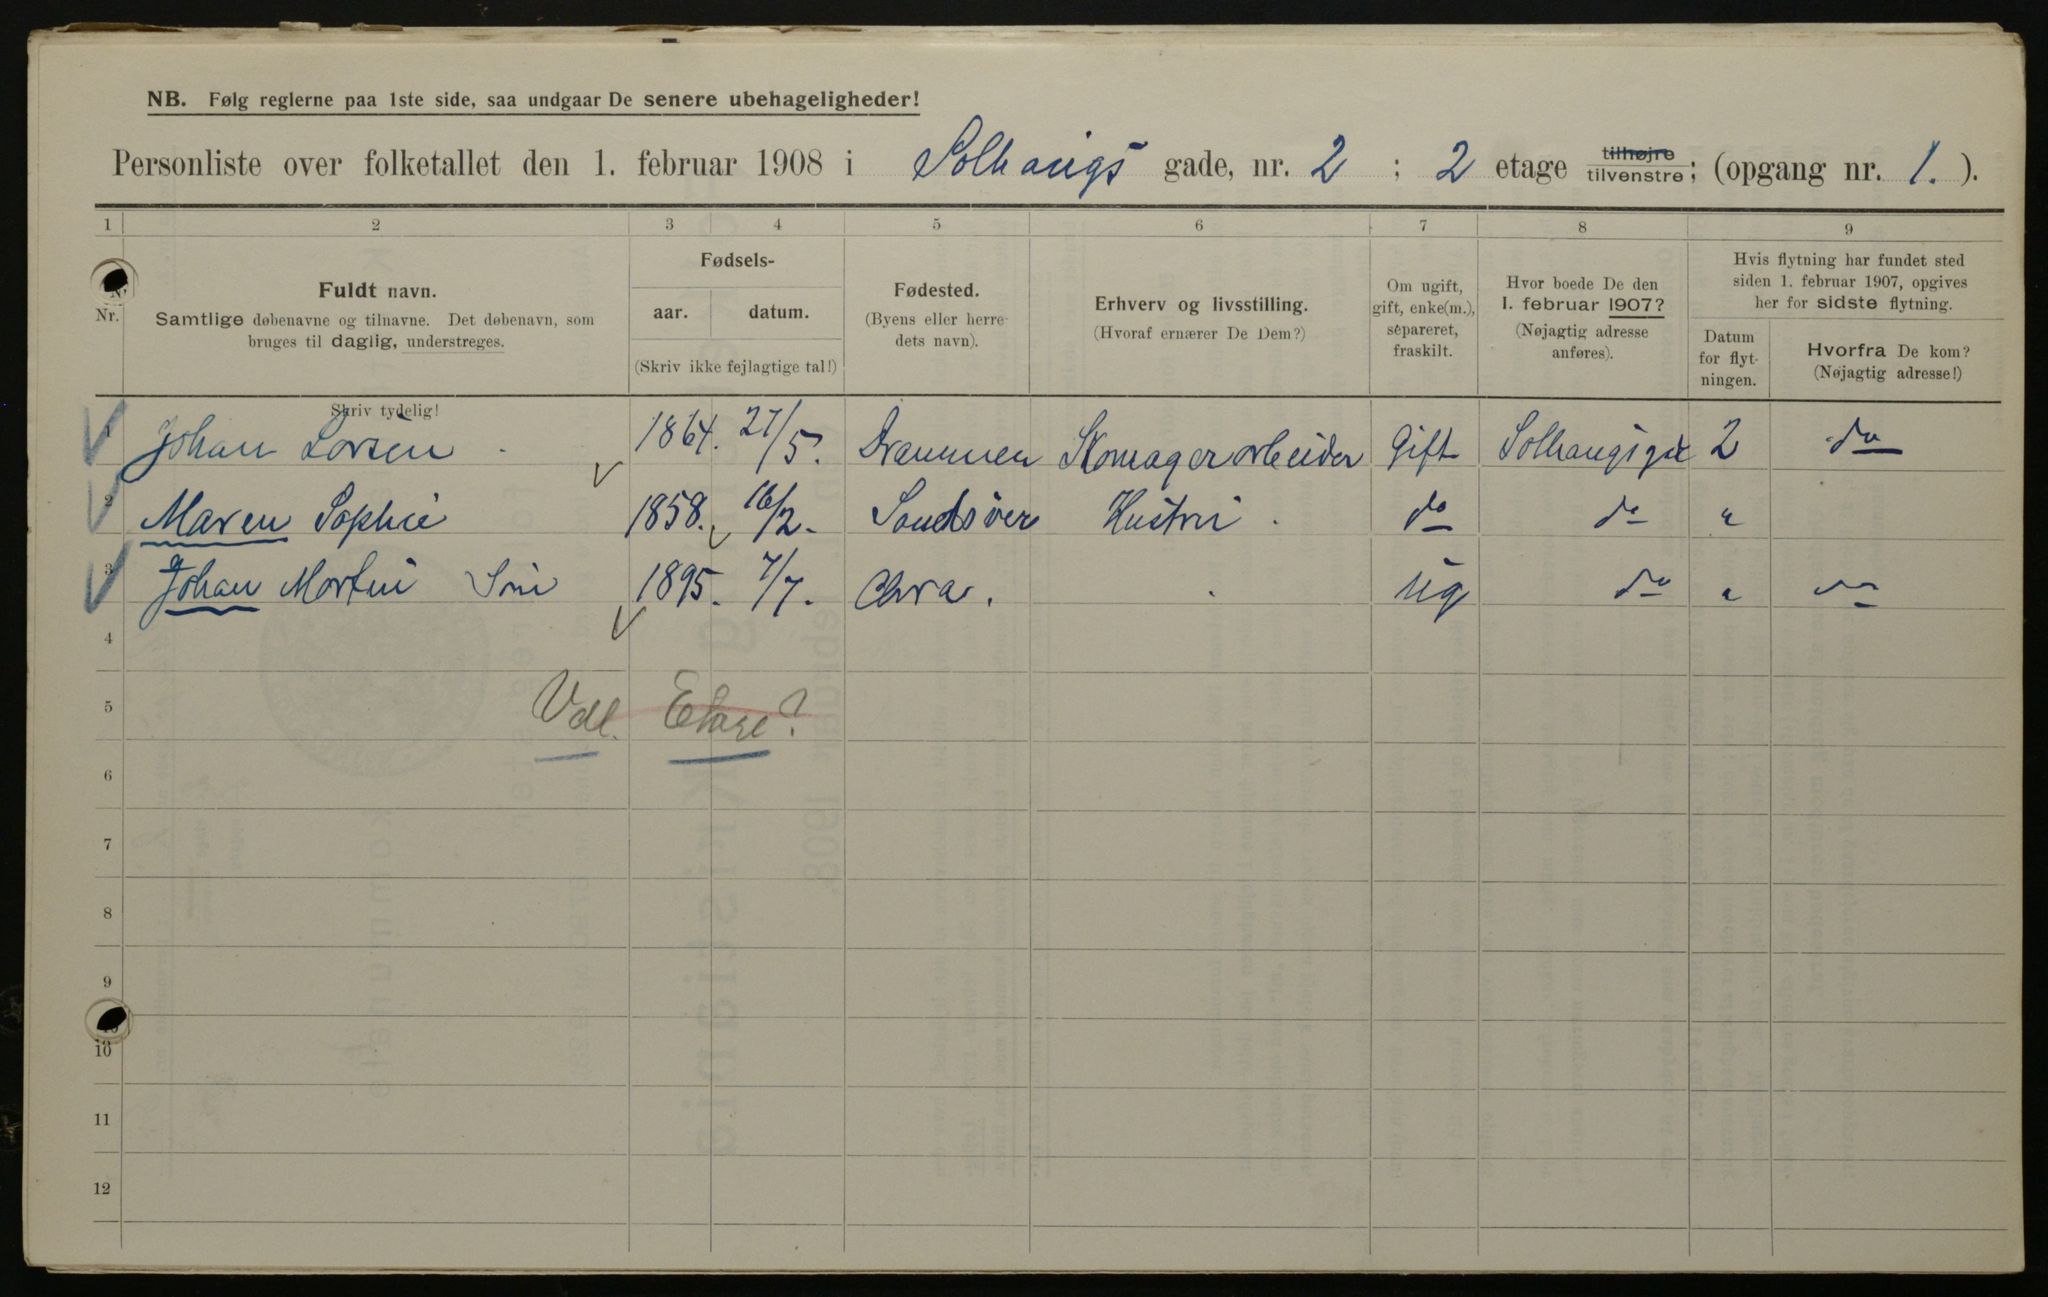 NB. Følg reglerne paa 1ste side, saa undgaar De senere ubehageligheder!
Personliste over folketallet den 1. februar 1908 i Solhaugs gade, nr. 2 ; 2 etage tilhøjre tilvenstre; (opgang nr. 1. ).
1 2 3 4 5 6 7 8 9
Nr.
Fuldt navn.
Samtlige døbenavne og tilnavne. Det døbenavn, som
bruges til daglig, understreges.
Skriv tydelig!
Fødsels-
aar. datum.
(Skriv ikke fejlagtige tal!)
Fødested.
(Byens eller herre-
dets navn).
Erhverv og livsstilling.
(Hvoraf ernærer De Dem?)
Om ugift,
gift, enke(m.),
separeret,
fraskilt.
Hvor boede De den
1. februar 1907?
(Nøjagtig adresse
anføres).
Hvis flytning har fundet sted
siden 1. februar 1907, opgives
her for sidste flytning.
Datum
for flyt-
ningen.
Hvorfra De kom?
(Nøjagtig adresse!)
1 Johan Larsen 1864. 27/5. Drammen Skomagerarbeider Gift Solhaugsgd 2 do
2 Maren Sophie 1858. 16/2. Sandsvær Hustru do do "
3 Johan Martin Søn 1895. 7/7. Chra. ug do " do
4
5 Vdl. Etage?
6
7
8
9
10
11
12